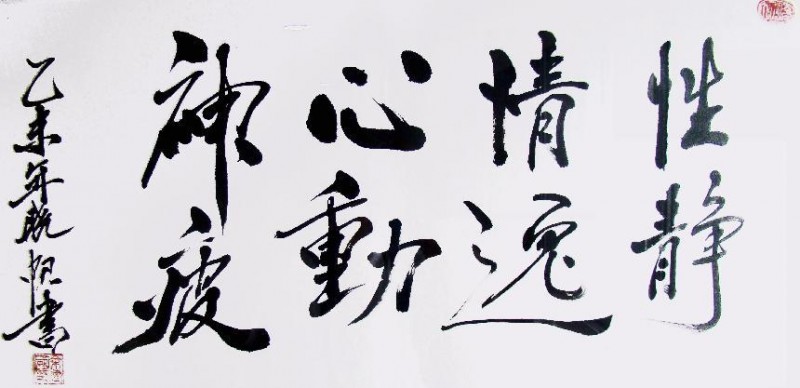 性静
情逸
心動
神疲
乙未年
書